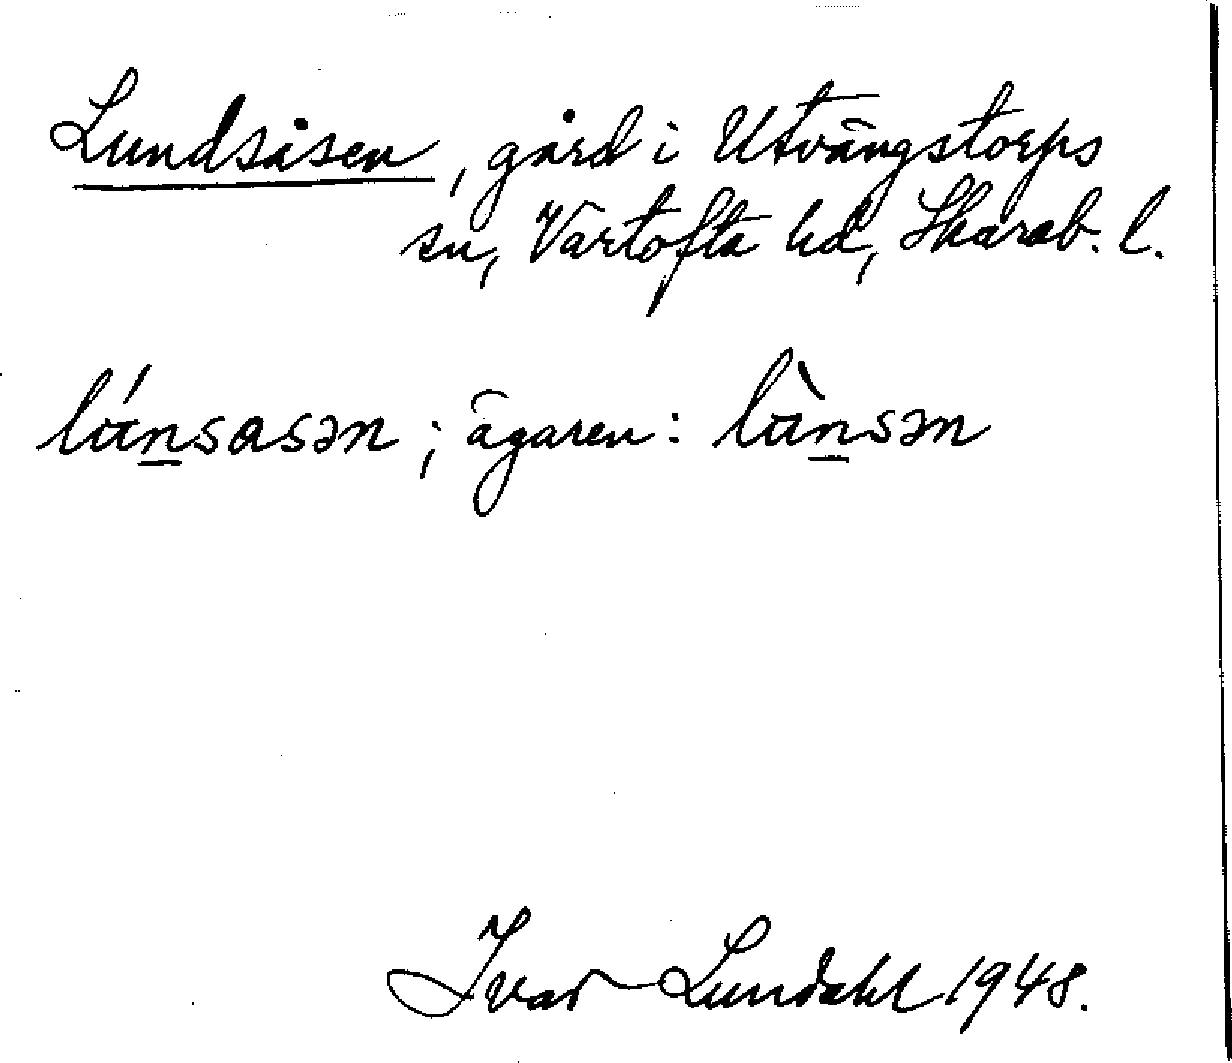 Lundsåsen, gård i Utvängstorps
sn, Vartofta hd, Skarab. l.
lúnsasən; ägaren: lùnsən
Ivar Lundahl 1948.